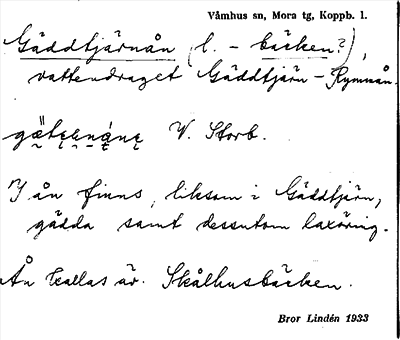 Våmhus sn, Mora tg, Koppb. l.
Gäddtjärnån (l. – bäcken?),
vattendraget Gäddtjärn – Rymnån.
V. Storb.
I ån finns, liksom i Gäddtjärn,
gädda samt dessutom laxöring.
Ån kallas äv. Skålhusbäcken.
Bror Lindén 1933